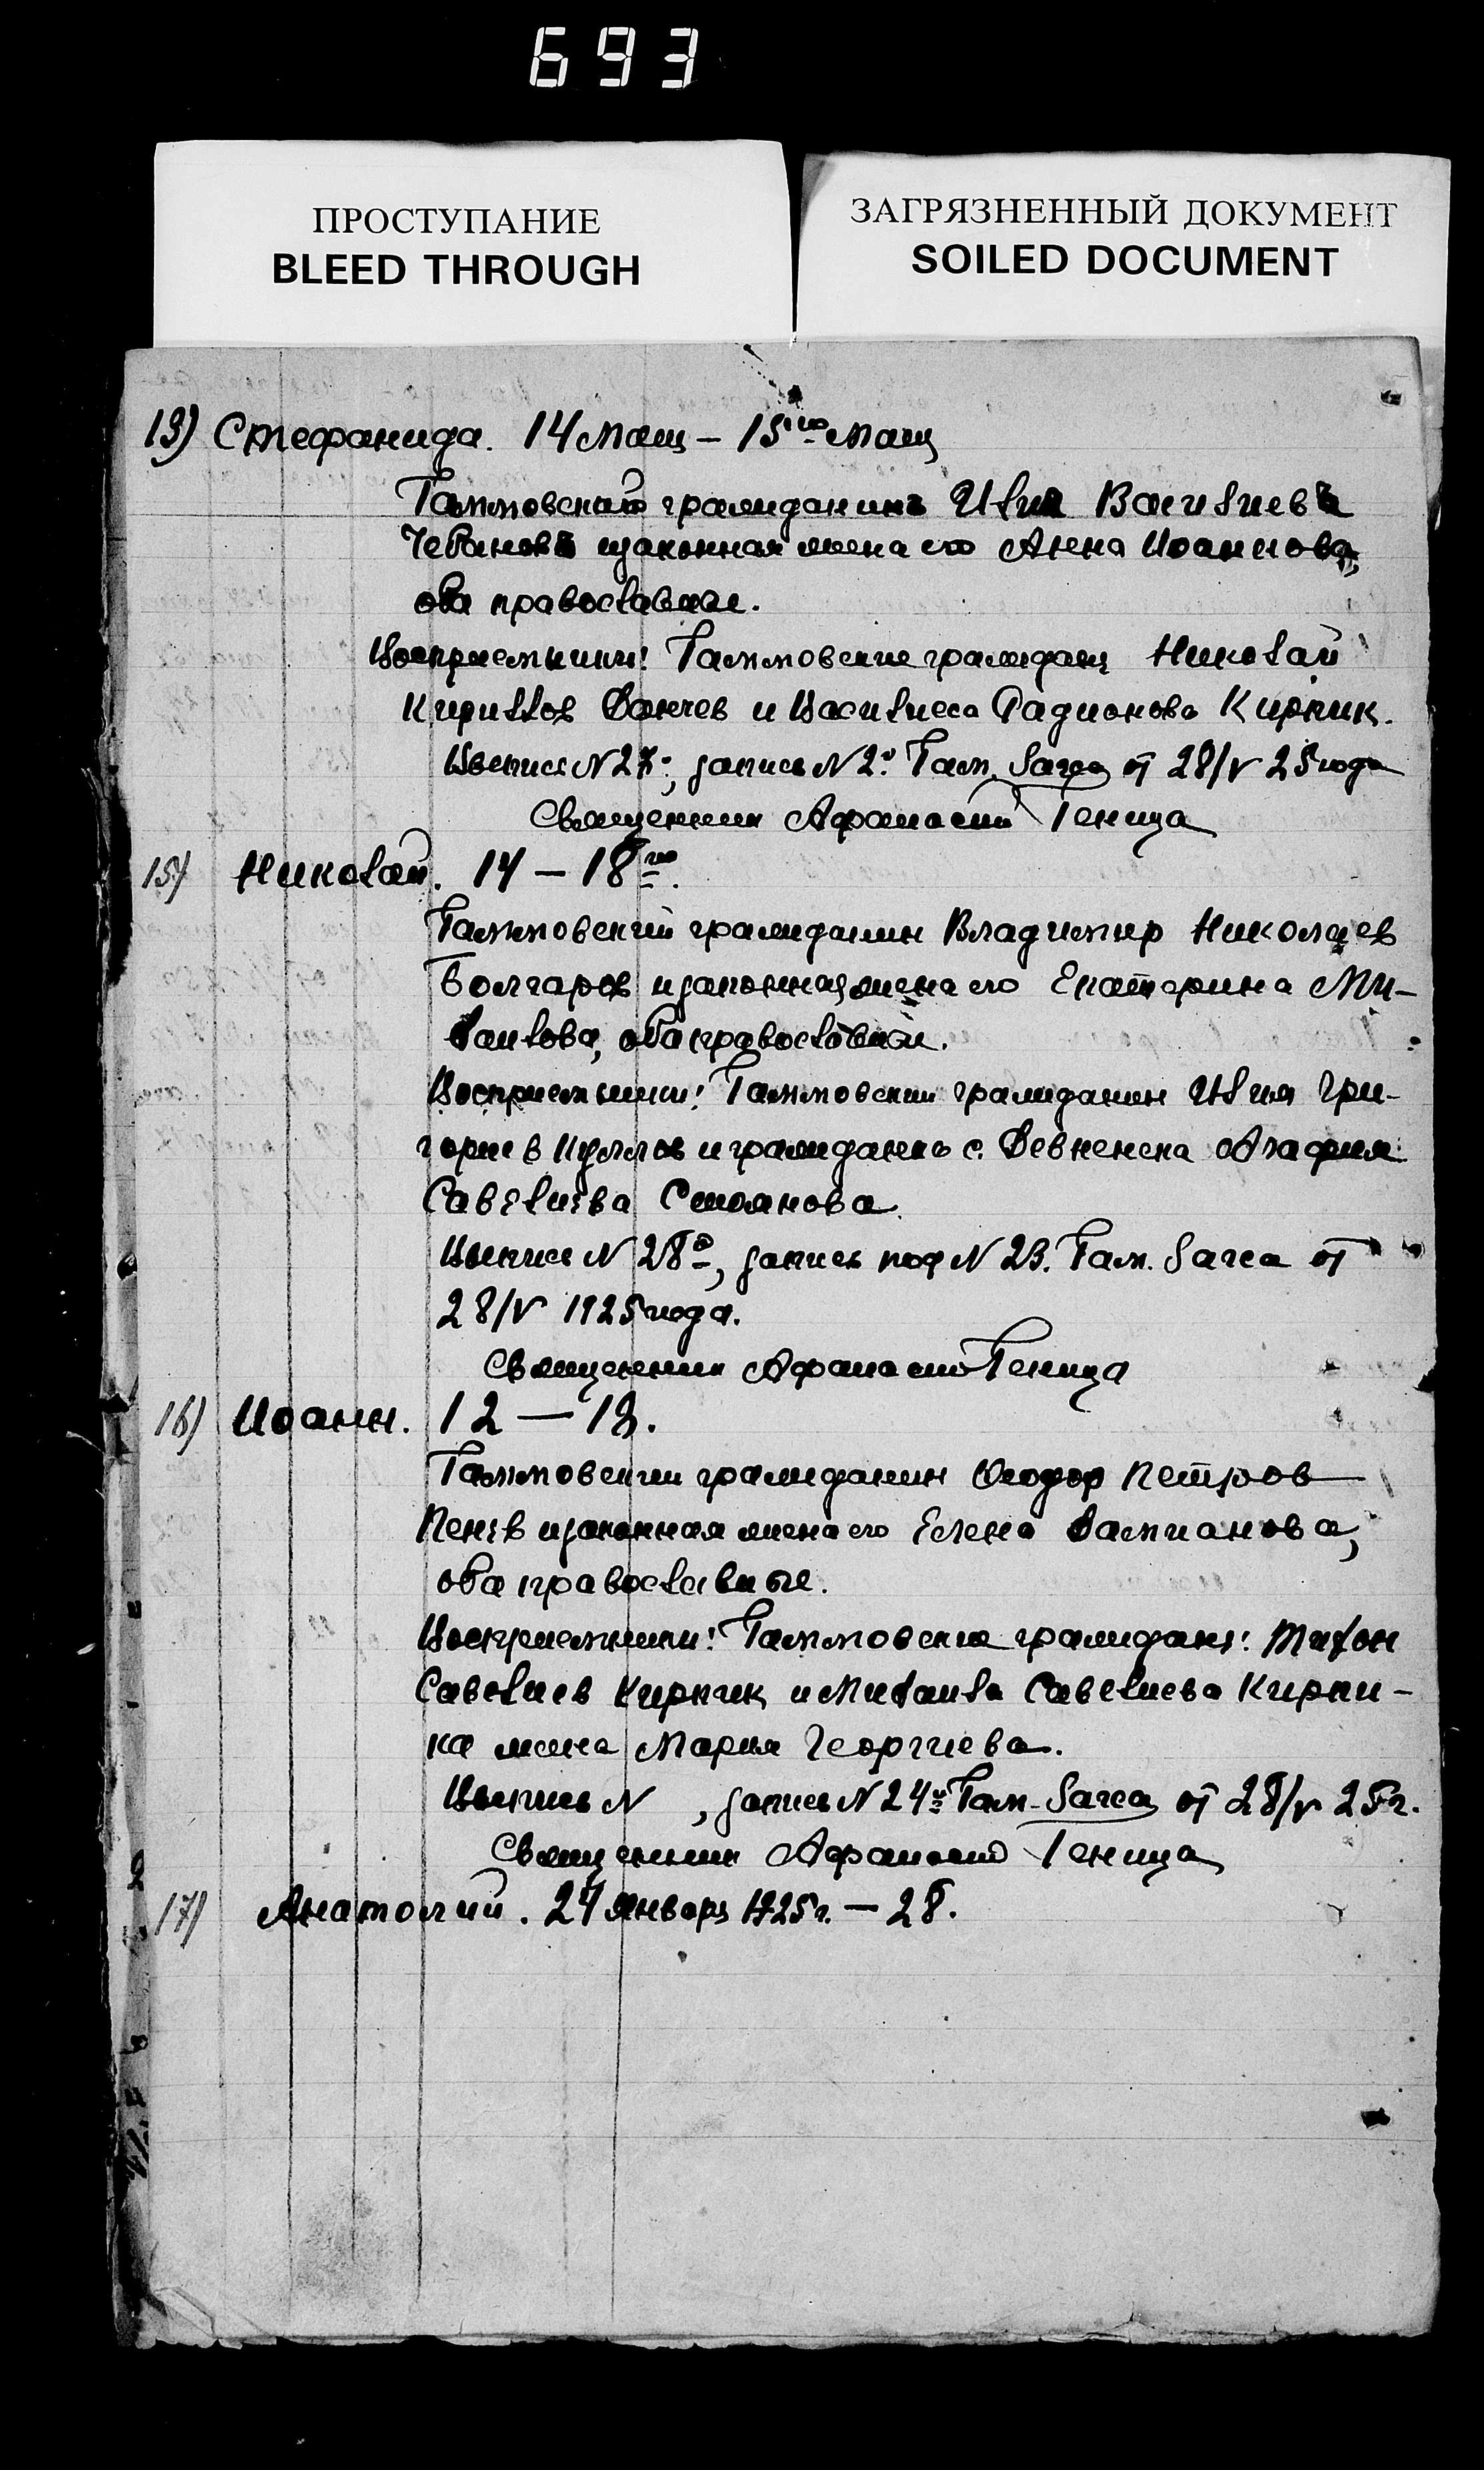 693
ПРОСТУПАНИЕ
BLEED THROUGH
ЗАГРЯЗНЕННЫЙ ДОКУМЕНТ
SOILED DOCUMENT
13) Стефанида. 14 мая – 15го мая
Таммовский гражданинъ Илия Васильевъ
Чебановъ и законная жена его Анна Иоаннова,
оба православные.
Восприемники: Таммовские граждане Николай
Кириллов Ванчев и Василиса Радионова Кирпик.
Выпись N 27, запись N 2. Там. Загса от 28/V 25 года
Священник Афанасий Геница
15) Николай. 14 – 18го.
Таммовский гражданин Владимир Николаев
Болгаров и законная жена его Екатерина Ми-
хаилова, оба православные.
Восприемники: Таммовский гражданин Илия Гри-
горьев и гражданка с. Девненска Агафия
Савельева Стоянова.
Выпись N 28, запись под N 23. Там. Загса от
28/V 1925 года.
Священник Афанасий Геница
16) Иоанн. 12 – 13.
Таммовский гражданин Феодор Петров
Пенев и законная жена его Елена Дамианова,
оба православные.
Восприемники: Таммовские граждане: Тихон
Савельев Кирпик и Михаила Савельева Кирпи-
ка жена Мария Георгиева.
Выпись N , запись N 24 Там. Загса от 28/V 25 г.
Священник Афанасий Геница
17) Анатолий. 24 января 1925 г. – 28.